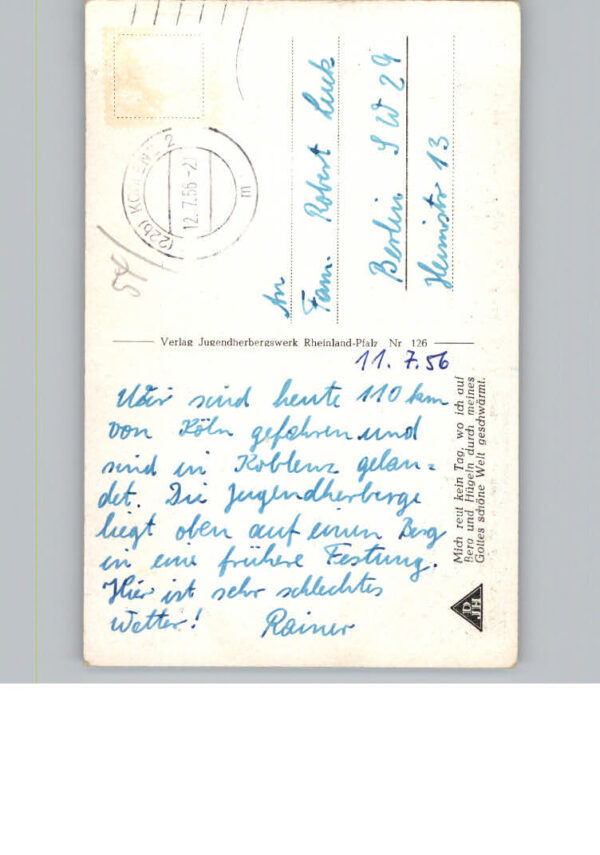 (22b) KOBLENZ 2
12.7.56-21
m
54
An
Fam. Robert Luck
Berlin SW 29
Heimstr 13
Verlag Jugendherbergswerk Rheinland-Pfalz Nr. 126
11.7.56
Wir sind heute 110 km
von Köln gefahren und
sind in Koblenz gelan=
det. Die Jugendherberge
liegt oben auf einen Berg
in eine frühere Festung.
Hier ist sehr schlechtes
Wetter! Rainer
Mich reut kein Tag, wo ich auf
Berg und Hügeln durch meines
Gottes schöne Welt geschwärmt.
DJH